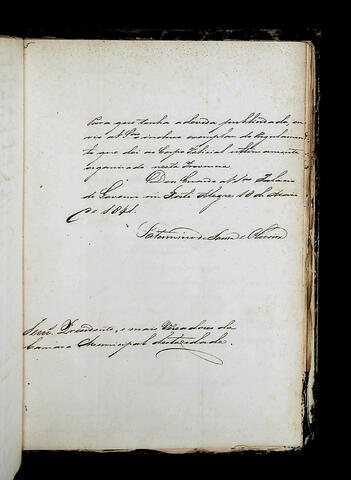 Para que tenha a devida publicidade, en
vio a V.ces incluso exemplar do Regulamen
to que dei ao Corpo Policial ultimamente
organizado nesta Provincia.
Deos Guarde a V.ces Palacio
do Governo em Porto Alegre 18 de
de 1841.
Saturnino de Souza e Oliveira
Snrs. Presidente, e mais Vereadores da
Camara Municipal desta Cidade.